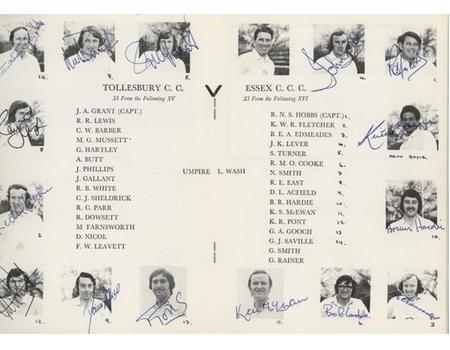 TOLLESBURY C. C.
XI From the Following XVI
J. A. GRANT (CAPT.)
R. R. LEWIS
C. W. BARBER
M. G. MUSSETT
G. HARTLEY
A. BUTT
J. PHILLIPS
J. GALLANT
R. B. WHITE
C. J. SHELDRICK
R. C. PARR
R. DOWSETT
M FARNSWORTH
D. NICOL
F. W. LEAVETT
V
UMPIRE L. WASH
ESSEX C. C. C.
XI From the Following XV
R. N. S. HOBBS (CAPT.) 1.
K. W. R. FLETCHER 2.
B. E. A. EDMEADES 3.
J. K. LEVER 4.
S. TURNER 5.
R. M. O. COOKE 6.
N. SMITH 7.
R. E. EAST 8.
D. L. ACFIELD 9.
B. R. HARDIE 10.
K. S. McEWAN 11.
K. R. PONT 12.
G. A. GOOCH 13.
G. J. SAVILLE 14.
G. SMITH
G. RAINER
14.
7.
5.
4.
1.
Brian Hardie
10.
12.
9
13.
Ken McEwan
11.
Bob Cooke
6.
3